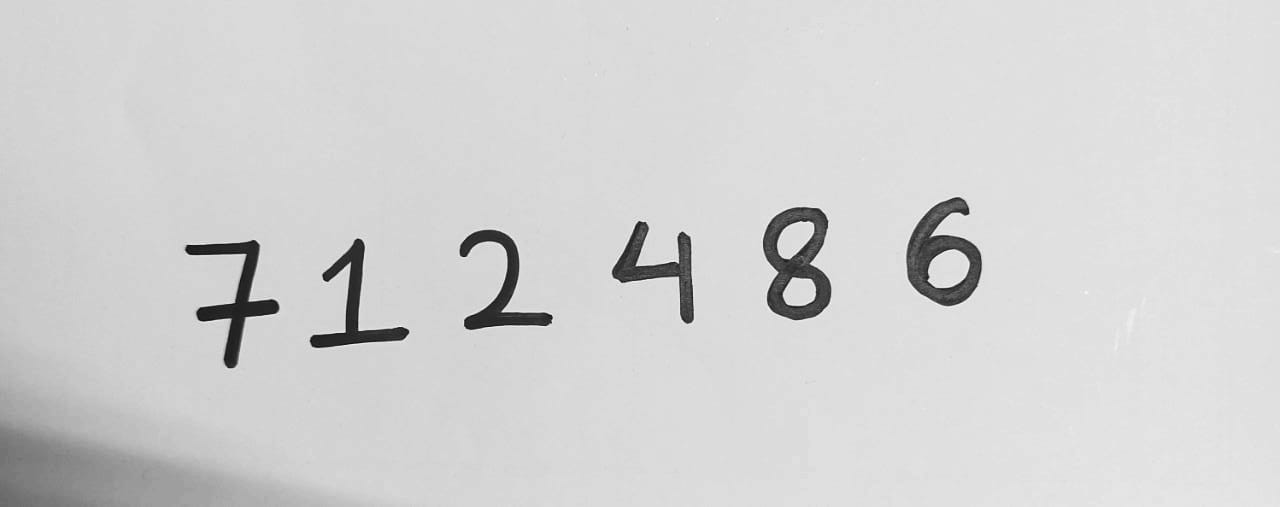 7 1 2 4 8 6